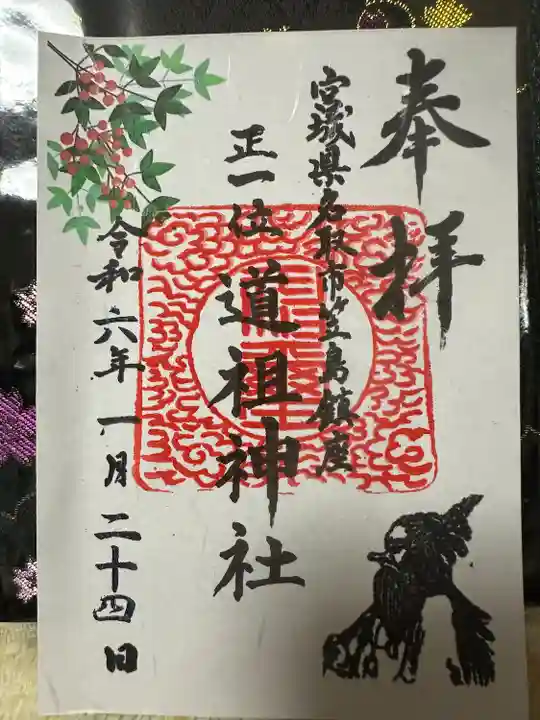 奉拝
宮城県名取市笠島鎮座
正一位 道祖神社
令和六年一月二十四日